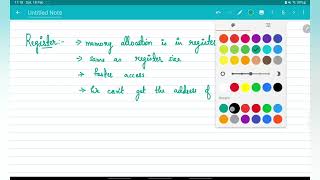 Untitled Note
Register:- → memory allocation is in register
→ same as register size
→ faster access
→ We can't get the address of